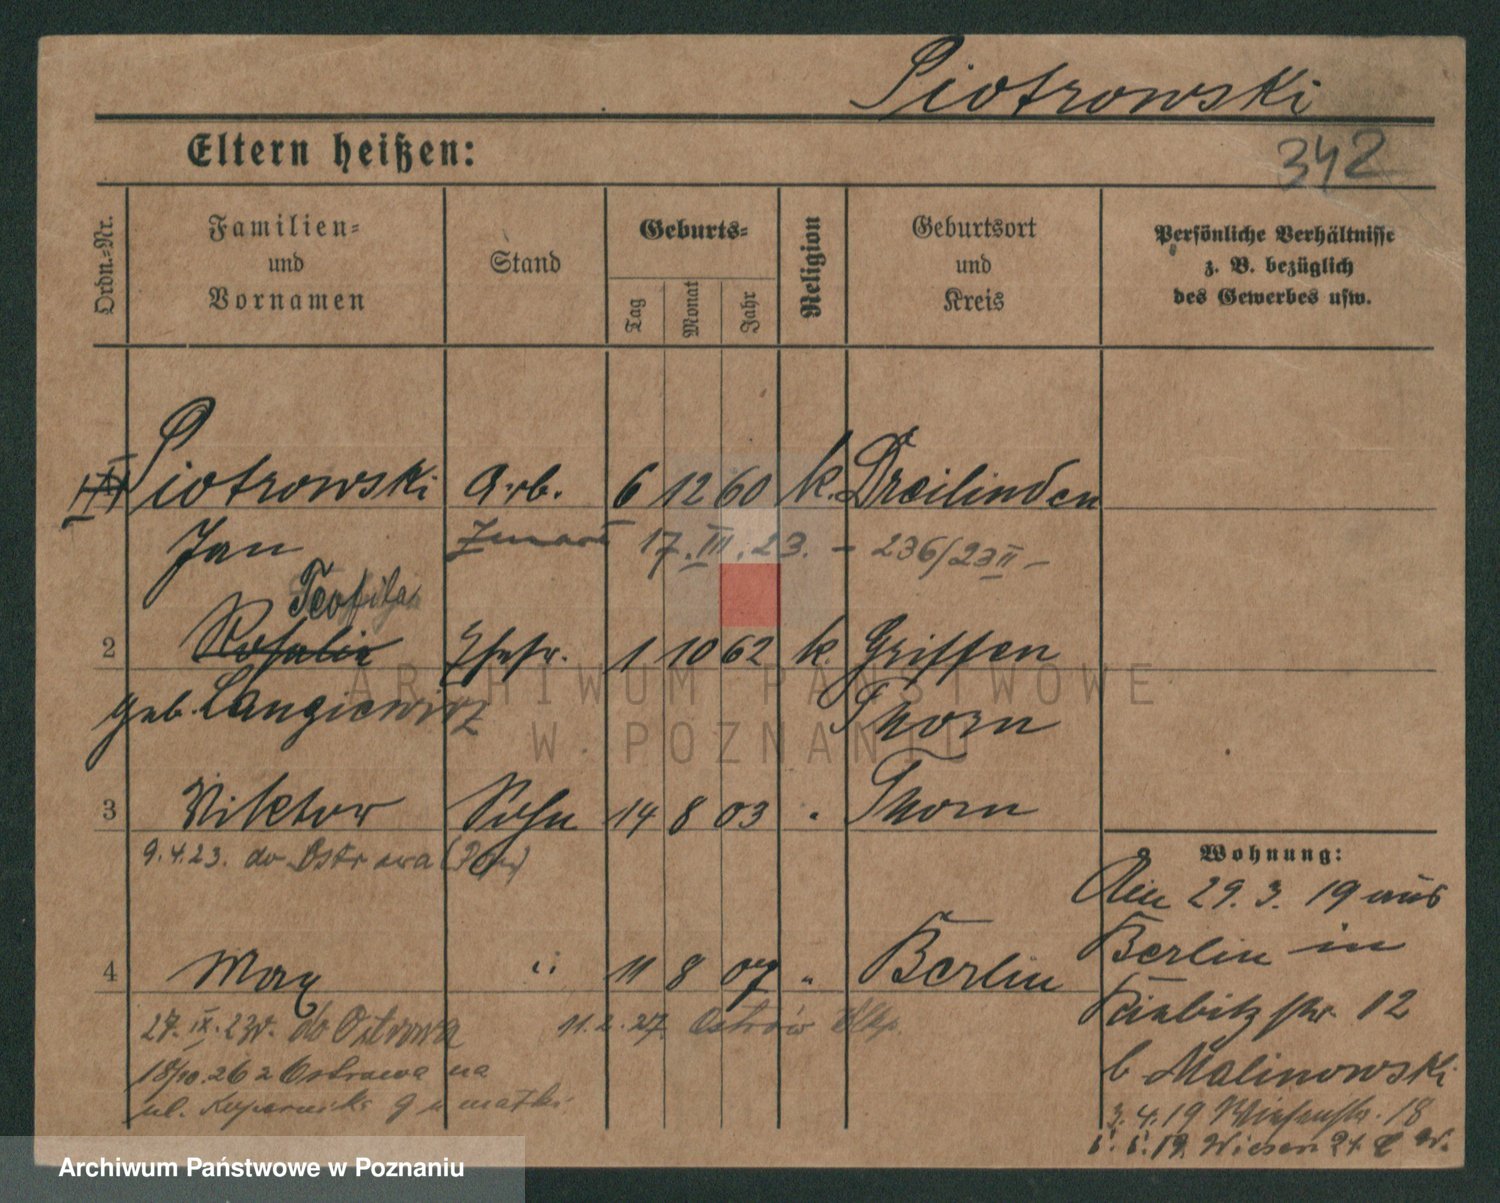 Piotrowski
342
Eltern heißen:
Ordn.-Nr.
Familien-
und
Vornamen
Stand
Geburts-
Tag
Monat
Jahr
Religion
Geburtsort
und
Kreis
Persönliche Verhältnisse
z. B. bezüglich
des Gewerbes usw.
Piotrowski Arb. 6 12 60 k. Dreilinden
Jan 17. III. 23. - 236/23 II -
Teofila
2 Rosalie Ehefr. 1 10 62 k. Griffen
geb. Langiewicz Thorn
3 Viktor Sohn 14 8 03 " Thorn
9.4.23. do Ostrowa (Pozn)
4 Max " 11 8 07 " Berlin
27. IX. 23r. do Ostrowa 11.2.27. Ostrów Wlkp.
18/10.26 z Ostrowa na
ul. Kopernika 9 u matki
Wohnung:
Am 29. 3. 19 aus
Berlin in
Kiebitzstr. 12
b Malinowski
3.4.19 Wiesenstr. 18
Wiesen 21
ARCHIWUM PAŃSTWOWE
W POZNANIU
Archiwum Państwowe w Poznaniu